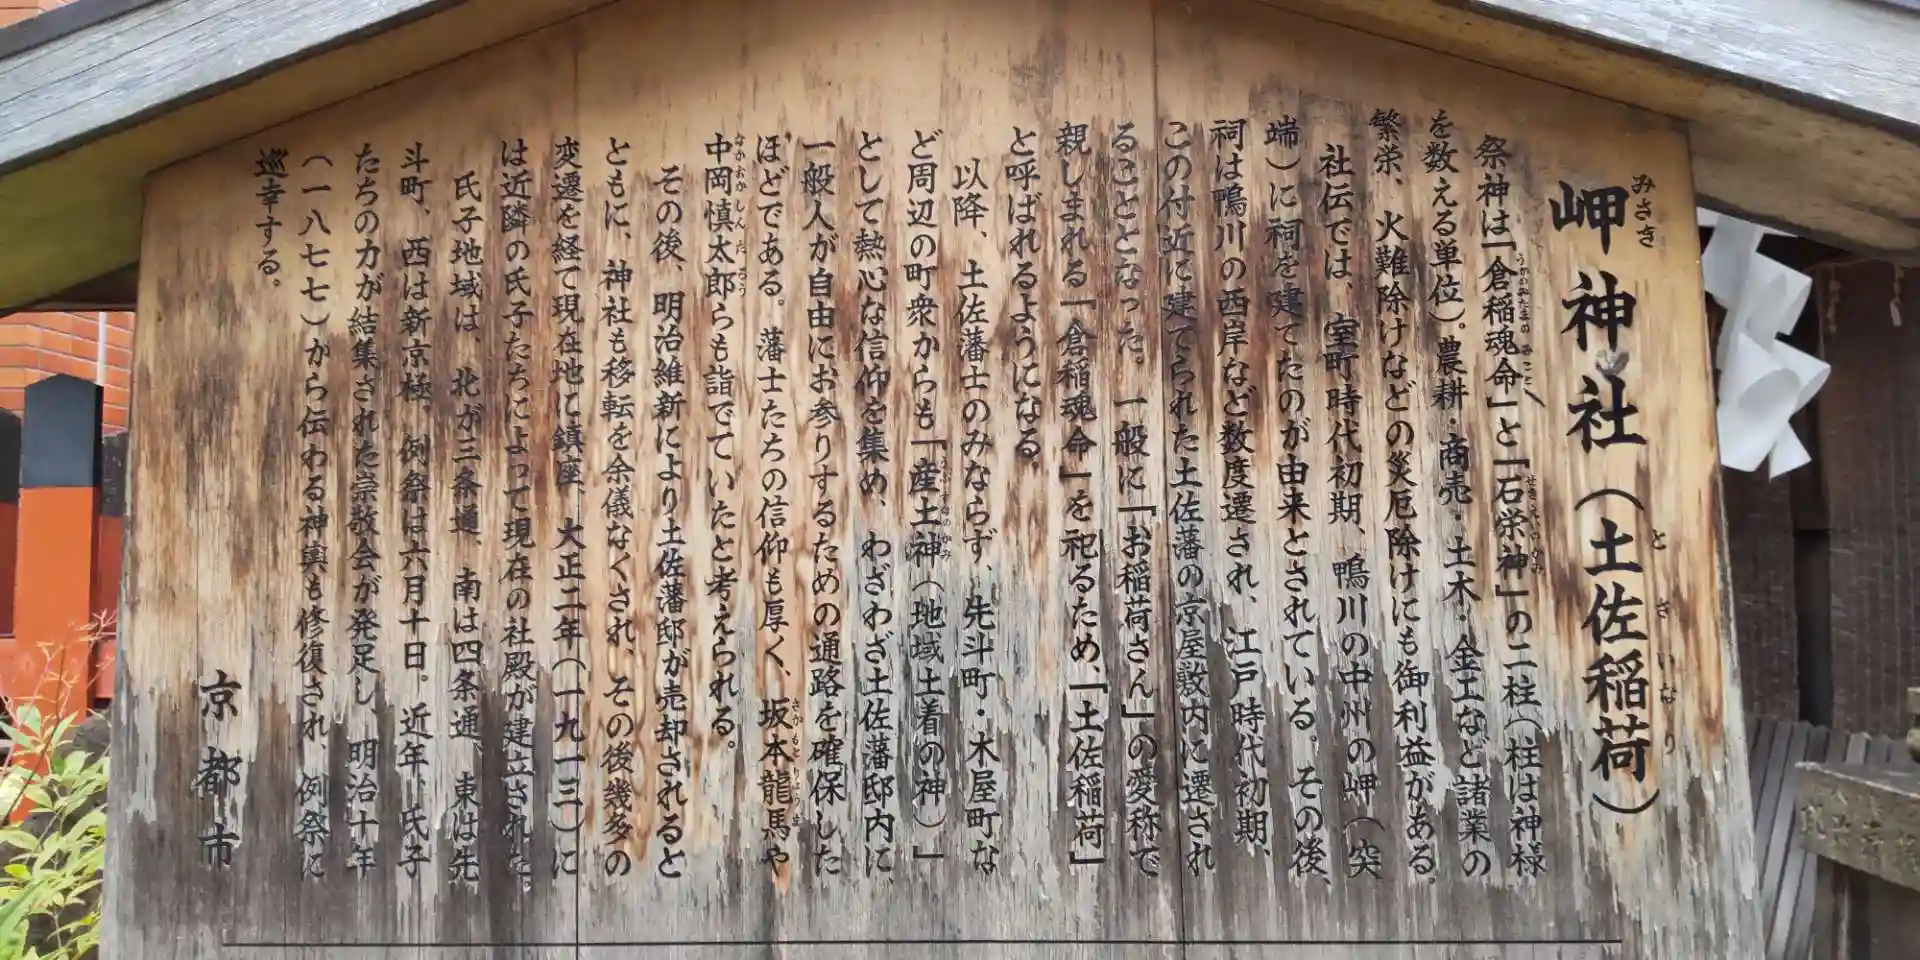 岬神社(土佐稲荷)
祭神は「倉稲魂命」と「石栄神」の二柱(柱は神様
を数える単位)。農耕・商売・土木・金工など諸業の
繁栄、火難除けなどの災厄除けにも御利益がある。
社伝では、室町時代初期、鴨川の中州の岬(突
端)に祠を建てたのが由来とされている。その後、
祠は鴨川の西岸など数度遷され、江戸時代初期、
この付近に建てられた土佐藩の京屋敷内に遷され
ることとなった。一般に「お稲荷さん」の愛称で
親しまれる「倉稲魂命」を祀るため、「土佐稲荷」
と呼ばれるようになる。
以降、土佐藩士のみならず、先斗町・木屋町な
ど周辺の町衆からも「産土神(地域土着の神)」
として熱心な信仰を集め、わざわざ土佐藩邸内に、
一般人が自由にお参りするための通路を確保した
ほどである。藩士たちの信仰も厚く、坂本龍馬や
中岡慎太郎らも詣でていたと考えられる。
その後、明治維新により土佐藩邸が売却されると
ともに、神社も移転を余儀なくされ、その後幾多の
変遷を経て現在地に鎮座、大正二年(一九一三)に
は近隣の氏子たちによって現在の社殿が建立された。
氏子地域は、北が三条通、南は四条通、東は先
斗町、西は新京極、例祭は六月十日。近年、氏子
たちの力が結集された崇敬会が発足し、明治十年
(一八七七)から伝わる神輿も修復され、例祭に
巡幸する。
京都市